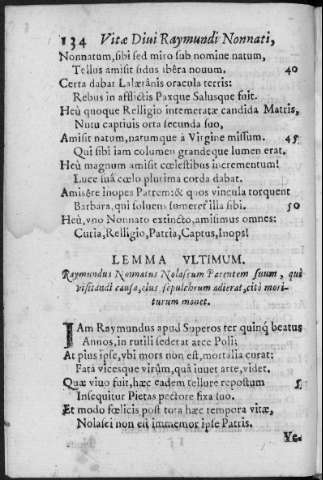 134 Vitæ Diui Raymundi Nonnati,
Nonnatum, sibi sed miro sub nomine natum,
Tellus amisit sidus ibêra nouum. 40
Certa dabat Lalæranis oracula terris:
Rebus in afflictis Paxque Salusque fuit.
Heù quoque Relligio intemeratæ candida Matris,
Nutu captiuis orta secunda suo,
Amisit natum, natumque à Virgine missum. 45
Qui sibi iam columen grandeque lumen erat.
Heù magnum amisit cœlestibus incrementum!
Luce suâ cœlo plurima corda dabat.
Amisêre inopes Patrem: & quos vincula torquent
Barbara, qui solueus someret illa sibi. 50
Heù, vno Nonnato extincto, amisimus omnes:
Curia, Relligio, Patria, Captus, Inops!
LEMMA VLTIMUM.
Raymundus Nonnatus Nolascum Parentem suum, quê
visitandi causa, eius sepulchrum adierat, citò mori-
turum monet.
IAm Raymundus apud Superos ter quinq; beatus
Annos, in rutili sedetat arce Poli;
At pius ipse, vbi mors non est, mortalia curat:
Fata vicesque virûm, quâ iuuet arte, videt.
Quæ viuo fuit, hæc eadem tellure repostum 5
Insequitur Pietas pectore fixa suo.
Et modo fœlicis post tota hæc tempora vitæ,
Nolasci non est immemor ipse Patris.
Ve-